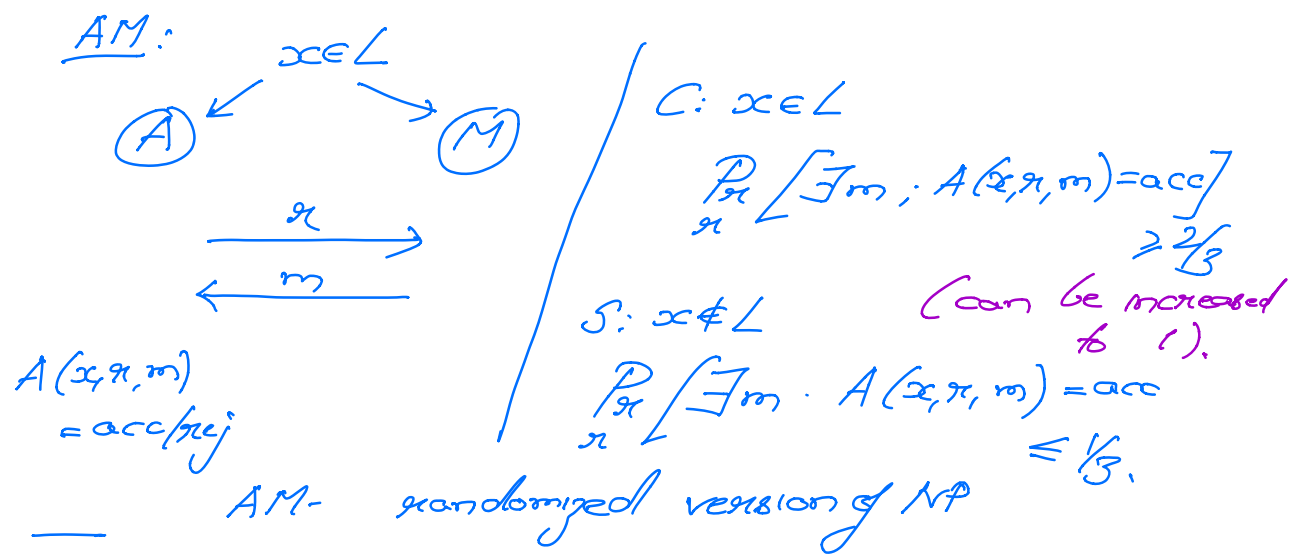 AM:
x∈L
A
M
r
m
A(x,r,m)
=acc/rej
C: x∈L
Pr_r [∃m; A(x,r,m)=acc]
≥ 2/3
(can be increased
to 1).
S: x∉L
Pr_r [∃m. A(x,r,m)=acc
≤ 1/3.
AM- randomized version of NP